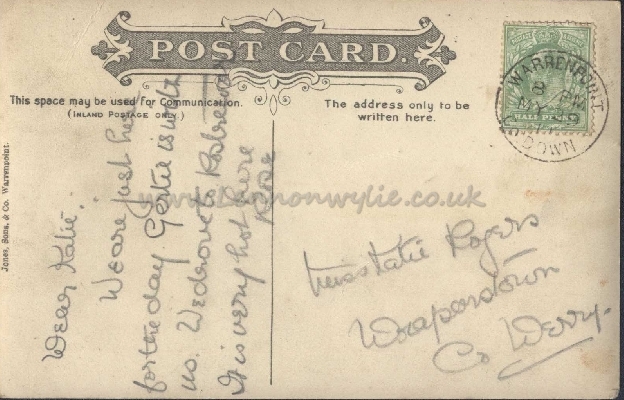 POST CARD.
This space may be used for Communication.
(INLAND POSTAGE ONLY.)
The address only to be
written here.
WARRENPOINT
8 PM
MY
DOWN
HALFPENNY
Jones, Sons, & Co. Warrenpoint.
Dear Katie.
We are just here
for the day Gertie is with
us. We drove to Rostrevor
It is very hot here
Rose
www.lennonwylie.co.uk
Miss Katie Rogers
Co Derry.